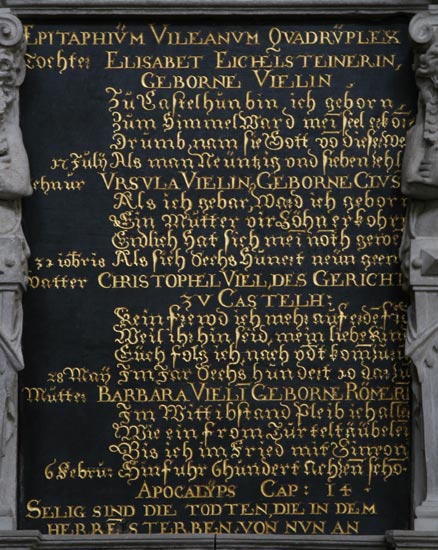 EPITAPHIŸM VILEANVM QVADRŸPLEX
Tochter ELISABET EICHELSTEINERIN,
GEBORNE VIELIN
Zu Castelhun bin, ich geborn
Zum Himmel Ward mei seel erkor
Drumb nam sie Gott vō diese We
17 Jŭlÿ Als man Neuntzig vnd sieben zehl
ehnur VRSVLA VIELIN, GEBORNE CLVS
Als ich gebar, Ward ich gebor
Ein Mutter vir Söhn erkohrn
Endlich Hat sich mei noth
Als sich Sechs Hunert neun
vatter CHRISTOPHEL VIEL, DES GERICHT
ZV CASTELH:
Kein frewd ich mehr auf erde
Weil ihr hin seid, mein liebe Kin
Euch folg ich nach
28 Maÿ Im Jar Sechs hundert 10 dar zu
Mutter BARBARA VIELI GEBORNE RÖMERI
Im Wittibstand bleib ich alle
Wie ein from Turteltäubele
Bis ich im Fried mit Simeon
6 Febru: Hinfuhr 6hundert
APOCALŸPS CAP: 14
SELIG SIND DIE TODTEN, DIE IN DEM
HERRĒ STERBEN VON NVN AN